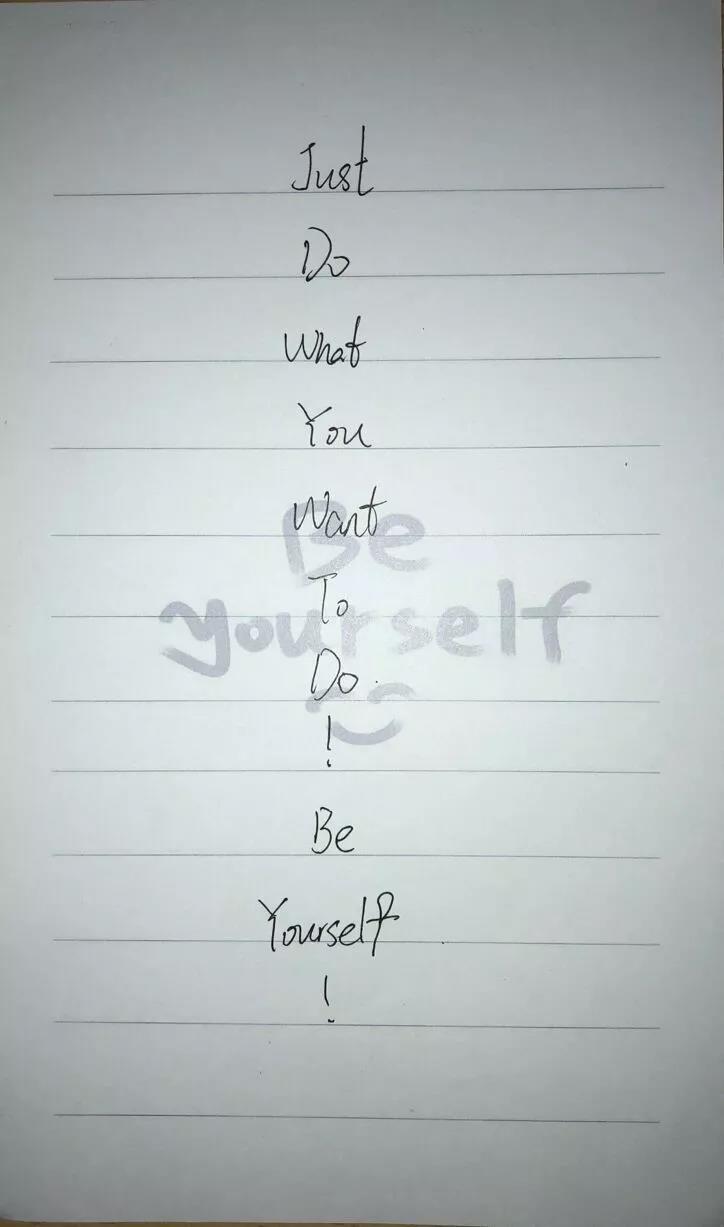 Just
Do
What
You
Want
Be
To
yourself
Do
!
Be
Yourself
!